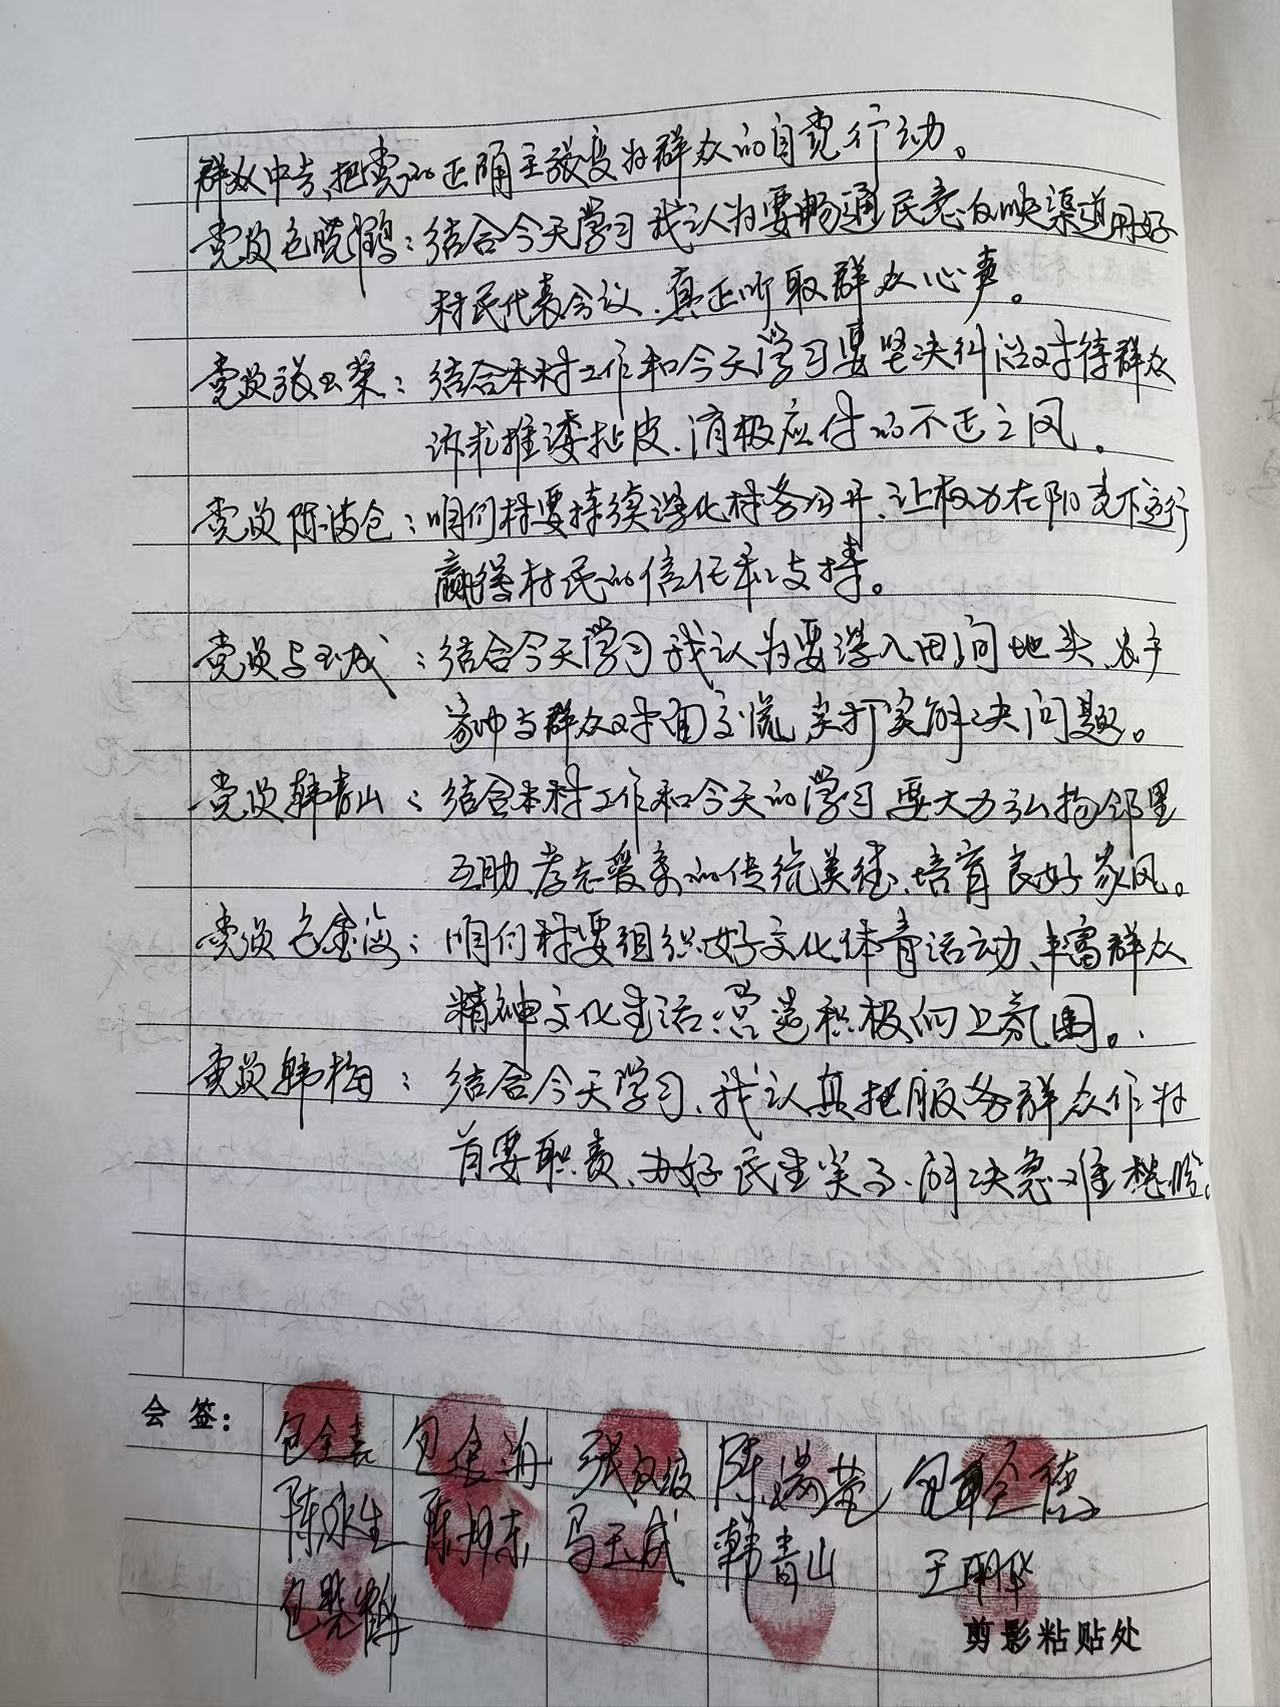 群众中去,把党的正确主张变为群众的自觉行动。
党员包晓鹤:结合今天学习我认为要畅通民意反映渠道用好
村民代表会议、真正听取群众心声。
党员张云荣:结合本村工作和今天学习要坚决纠治对待群众
诉求推诿扯皮、消极应付的不正之风。
党员陈满仓:咱们村要持续深化村务公开、让权力在阳光下运行
赢得村民的信任和支持。
党员马玉成:结合今天学习我认为要深入田间地头、农户
家中与群众对面交流,实打实解决问题。
党员韩青山:结合本村工作和今天的学习要大力弘扬邻里
互助、孝老爱亲的传统美德、培育良好家风。
党员包金海:咱们村要组织好文化体育活动、丰富群众
精神文化生活,营造积极向上氛围。
党员韩梅:结合今天学习、我认真把服务群众作为
首要职责、办好民生实事、解决急难愁盼。
会签:
包金喜 包金海 张 陈满仓 包 德
陈永生 陈 东 马玉成 韩青山 王
包晓鹤
剪影粘贴处